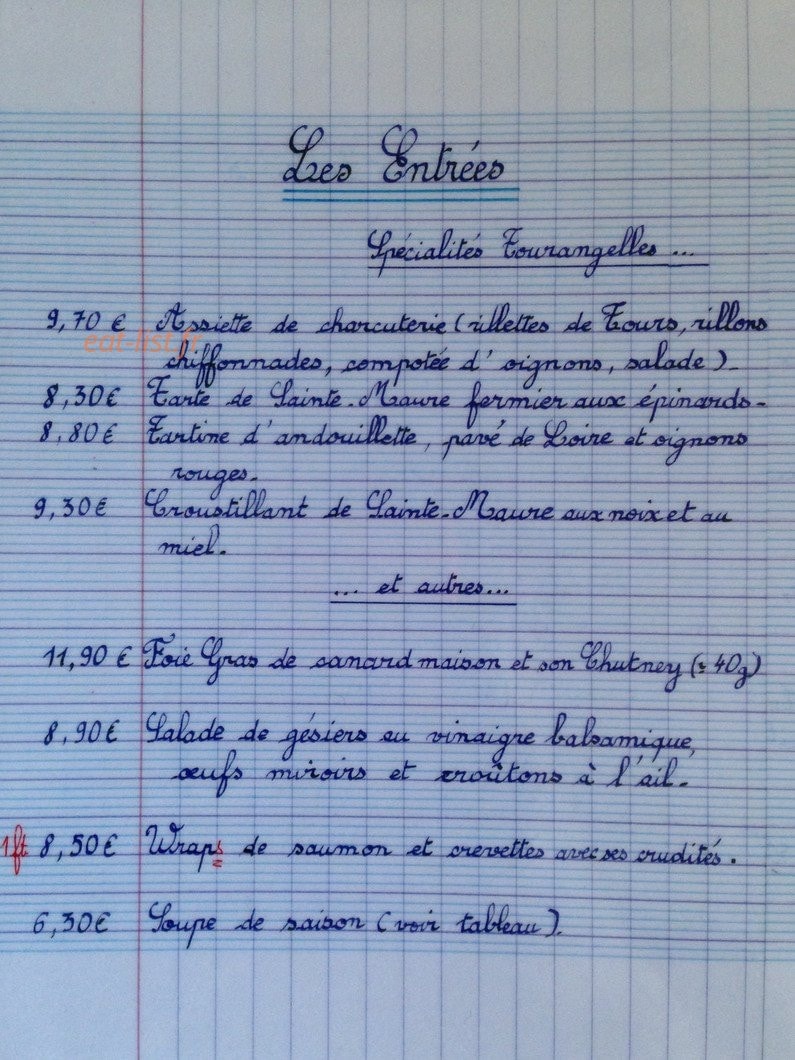 Les Entrées
Spécialités Tourangelles ...
9,70 € Assiette de charcuterie (rillettes de Tours, rillons
eat-list.fr
chiffonnades, compotée d'oignons, salade).
8,30 € Tarte de Sainte-Maure fermier aux épinards.
8,80 € Tartine d'andouillette, pavé de Loire et oignons
rouges.
9,30 € Croustillant de Sainte-Maure aux noix et au
miel.
... et autres...
11,90 € Foie Gras de canard maison et son Chutney (≈ 40g)
8,90 € Salade de gésiers au vinaigre balsamique,
œufs miroirs et croûtons à l'ail.
1ft 8,50 € Wraps de saumon et crevettes avec ses crudités.
6,30 € Soupe de saison (voir tableau).